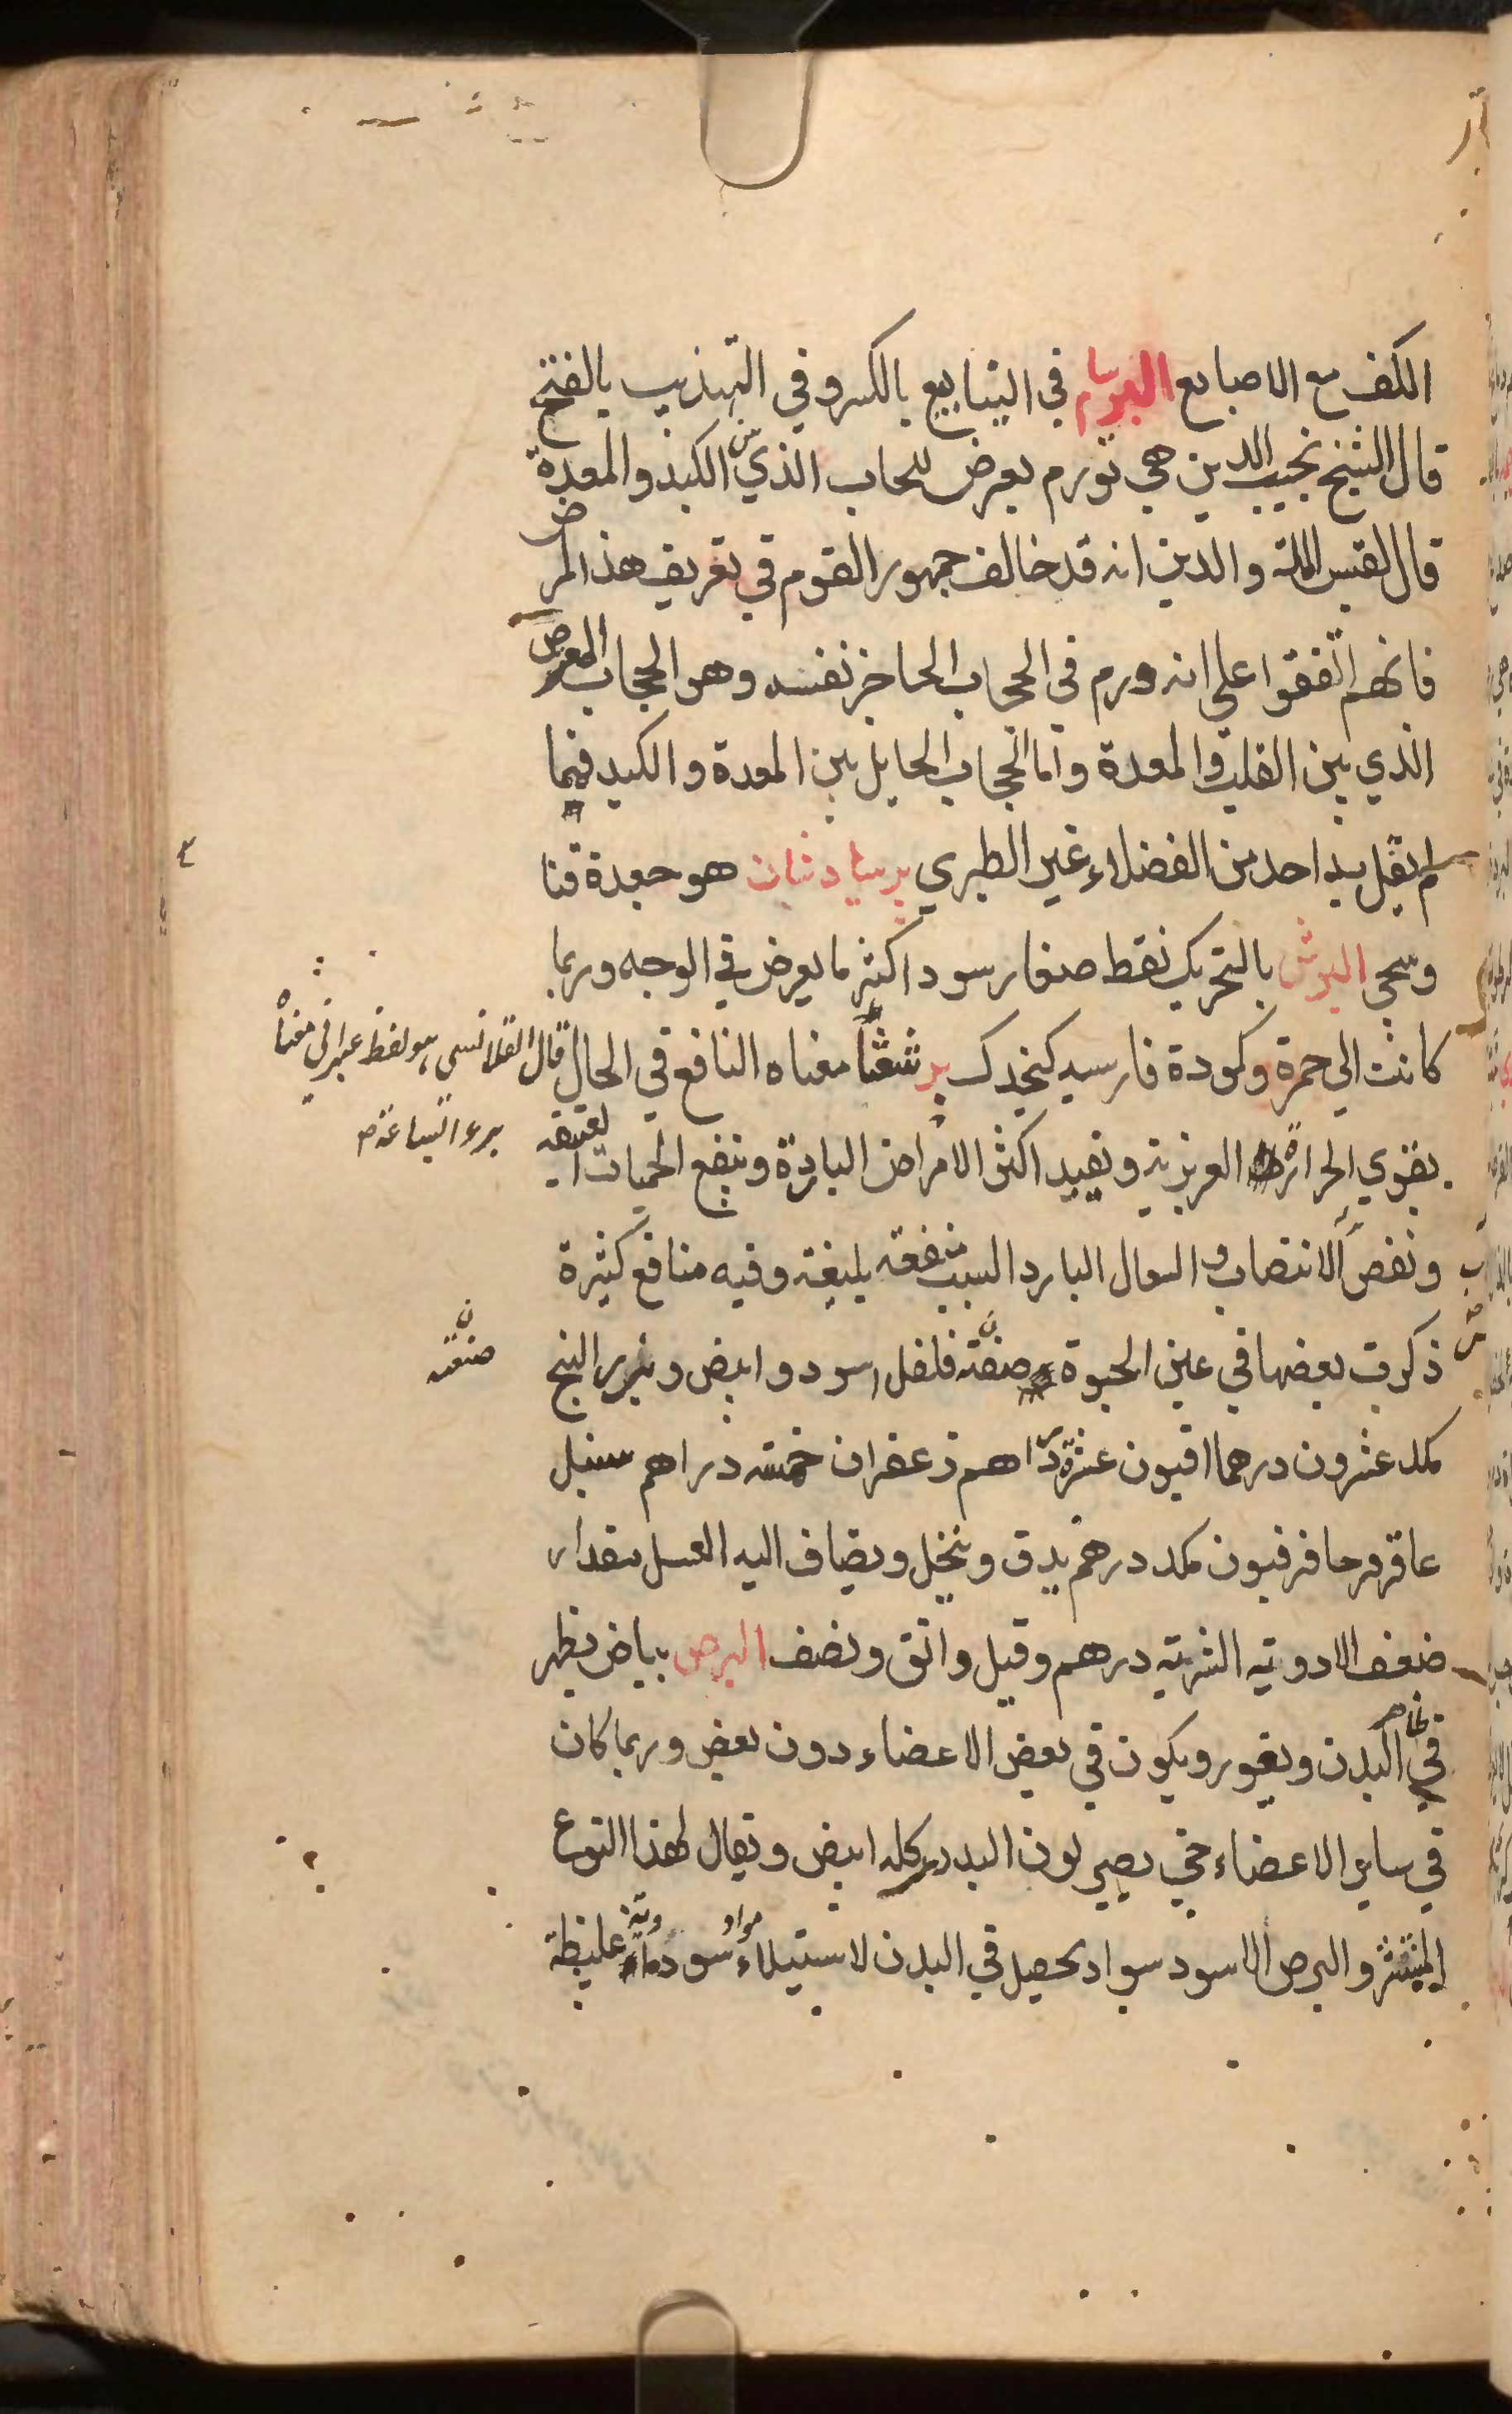 الكف مع الاصابع البرسام في الينابيع بالكسر وفي التهذيب بالفتح
قال الشيخ نجيب الدين هي تورم يعرض للحاب الذي بين الكبد والمعدة
قال نفيس الملة والدين انه قد خالف جمهور القوم في تعريف هذا المرض
فانهم اتفقوا على انه ورم في الحجاب الحاجز نفسه وهو الحجاب المعرض
الذي بين القلب والمعدة واما الحجاب الحايل بين المعدة والكبد فما
لم يقل به احد من الفضلاء غير الطبري برسيا دشان هو جعدة قنا
وسمى البرش بالتحريك نقط صغار سود اكثر ما يعرض في الوجه وربما
كانت الى حمرة وكمودة فارسيه كنجدك برشعثا معناه النافع في الحال
قال القلانسى هو لفظ عبراني معناه
برء الساعة
يقوي الحرارة الغريزية ويفيد اكثر الامراض الباردة وينفع الحميات العتيقه
ونفس الانتصاب و السعال البارد السبب منفعة بليغة وفيه منافع كثيرة
ذكرت بعضها في عين الحيوة صنعته فلفل اسود وابيض وبزر البنج
صنعته
مكد عشرون درهما افيون عشرة دراهم زعفران خمسة دراهم سنبل
عاقرقرحا فرفيون مكد درهم يدق وينخل ويضاف اليه العسل مقدار
ضعف الادوية الشربة درهم وقيل دانق ونصف البرص بياض يظهر
في ظاهر البدن ويغور ويكون في بعض الاعضاء دون بعض وربما كان
في ساير الاعضاء حتى يصير لون البدن كله ابيض ويقال لهذا النوع
المنتشر والبرص الاسود سواد يحصل في البدن لاستيلاء مواد سوداوية غليظة